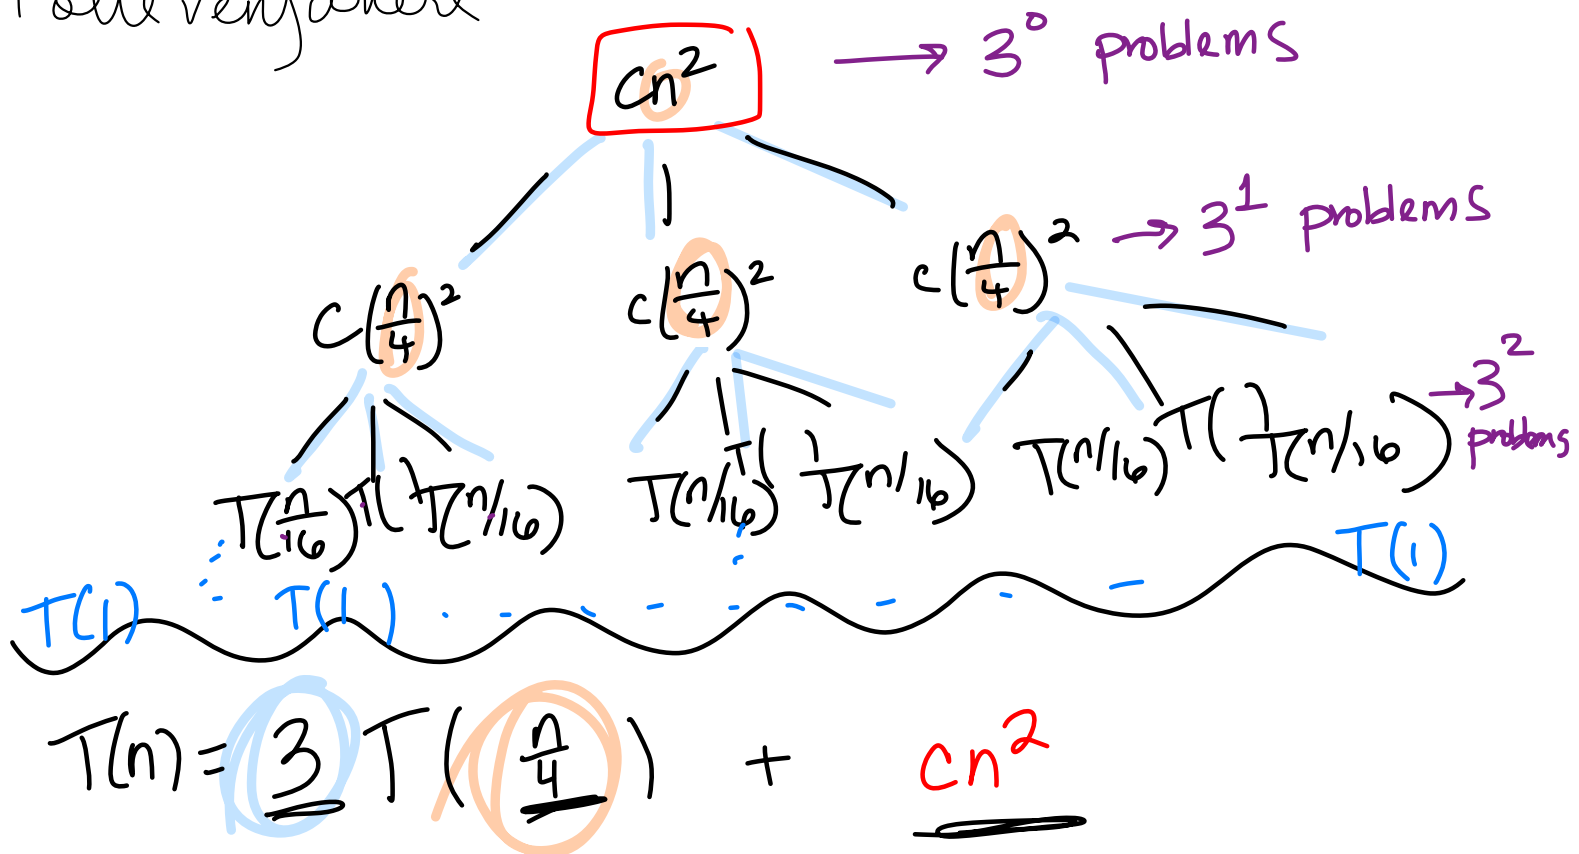 cn² → 3⁰ problems
c(n/4)² c(n/4)² c(n/4)² → 3¹ problems
T(n/16) T( T(n/16) T(n/16) T( T(n/16) T(n/16) T( T(n/16) → 3² problems
T(1) T(1) T(1)
T(n) = 3 T(n/4) + cn²